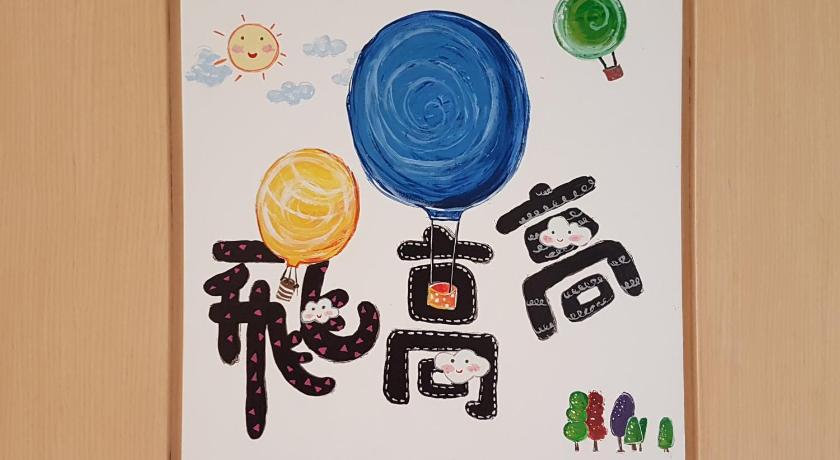 飛高高